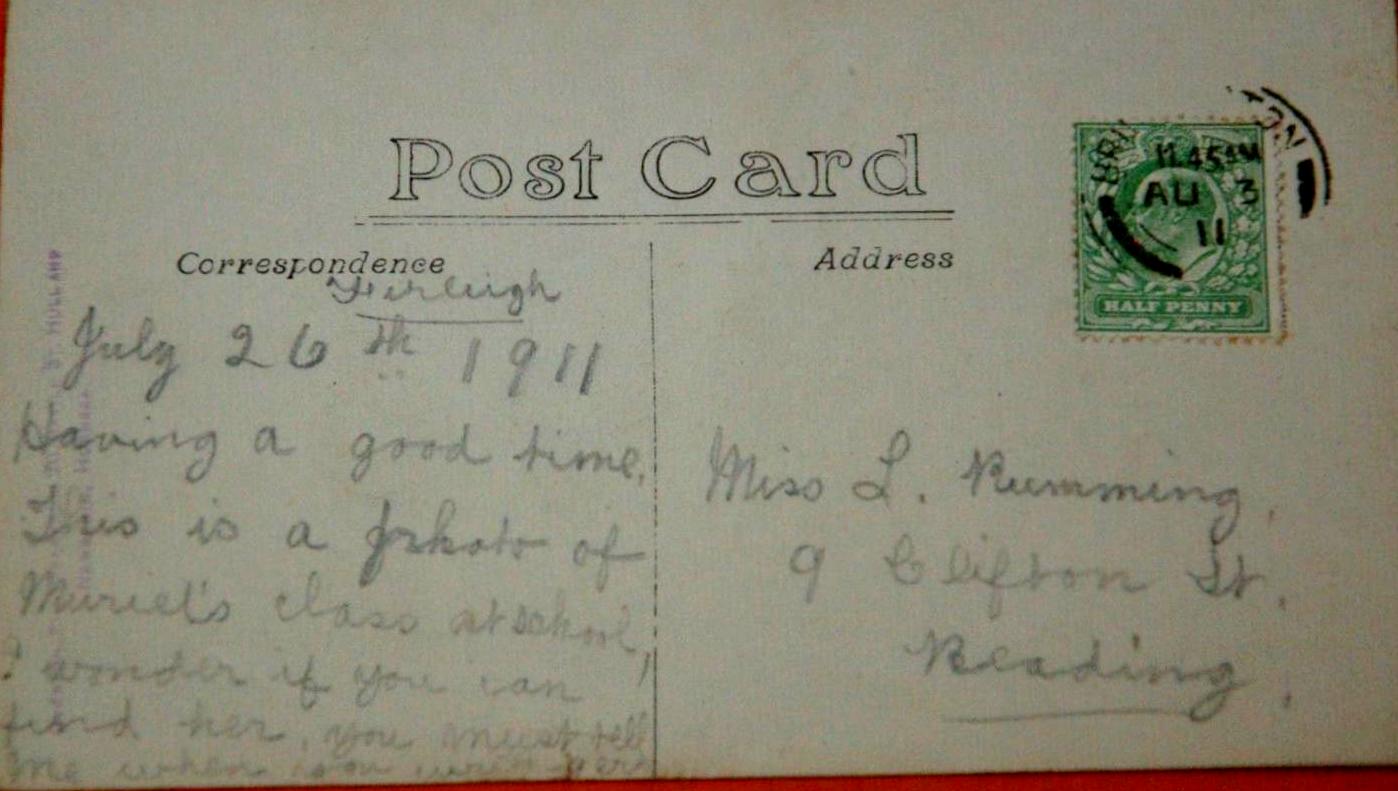 Post Card
Correspondence
Address
Firleigh
July 26th 1911
Having a good time.
This is a photo of
Muriel's class at school,
I wonder if you can
find her, you must tell
me when you write
Miss L. Rumming,
9 Clifton St.
Reading,
11.45AM
AU 3
11
HALF PENNY
HOLLAND